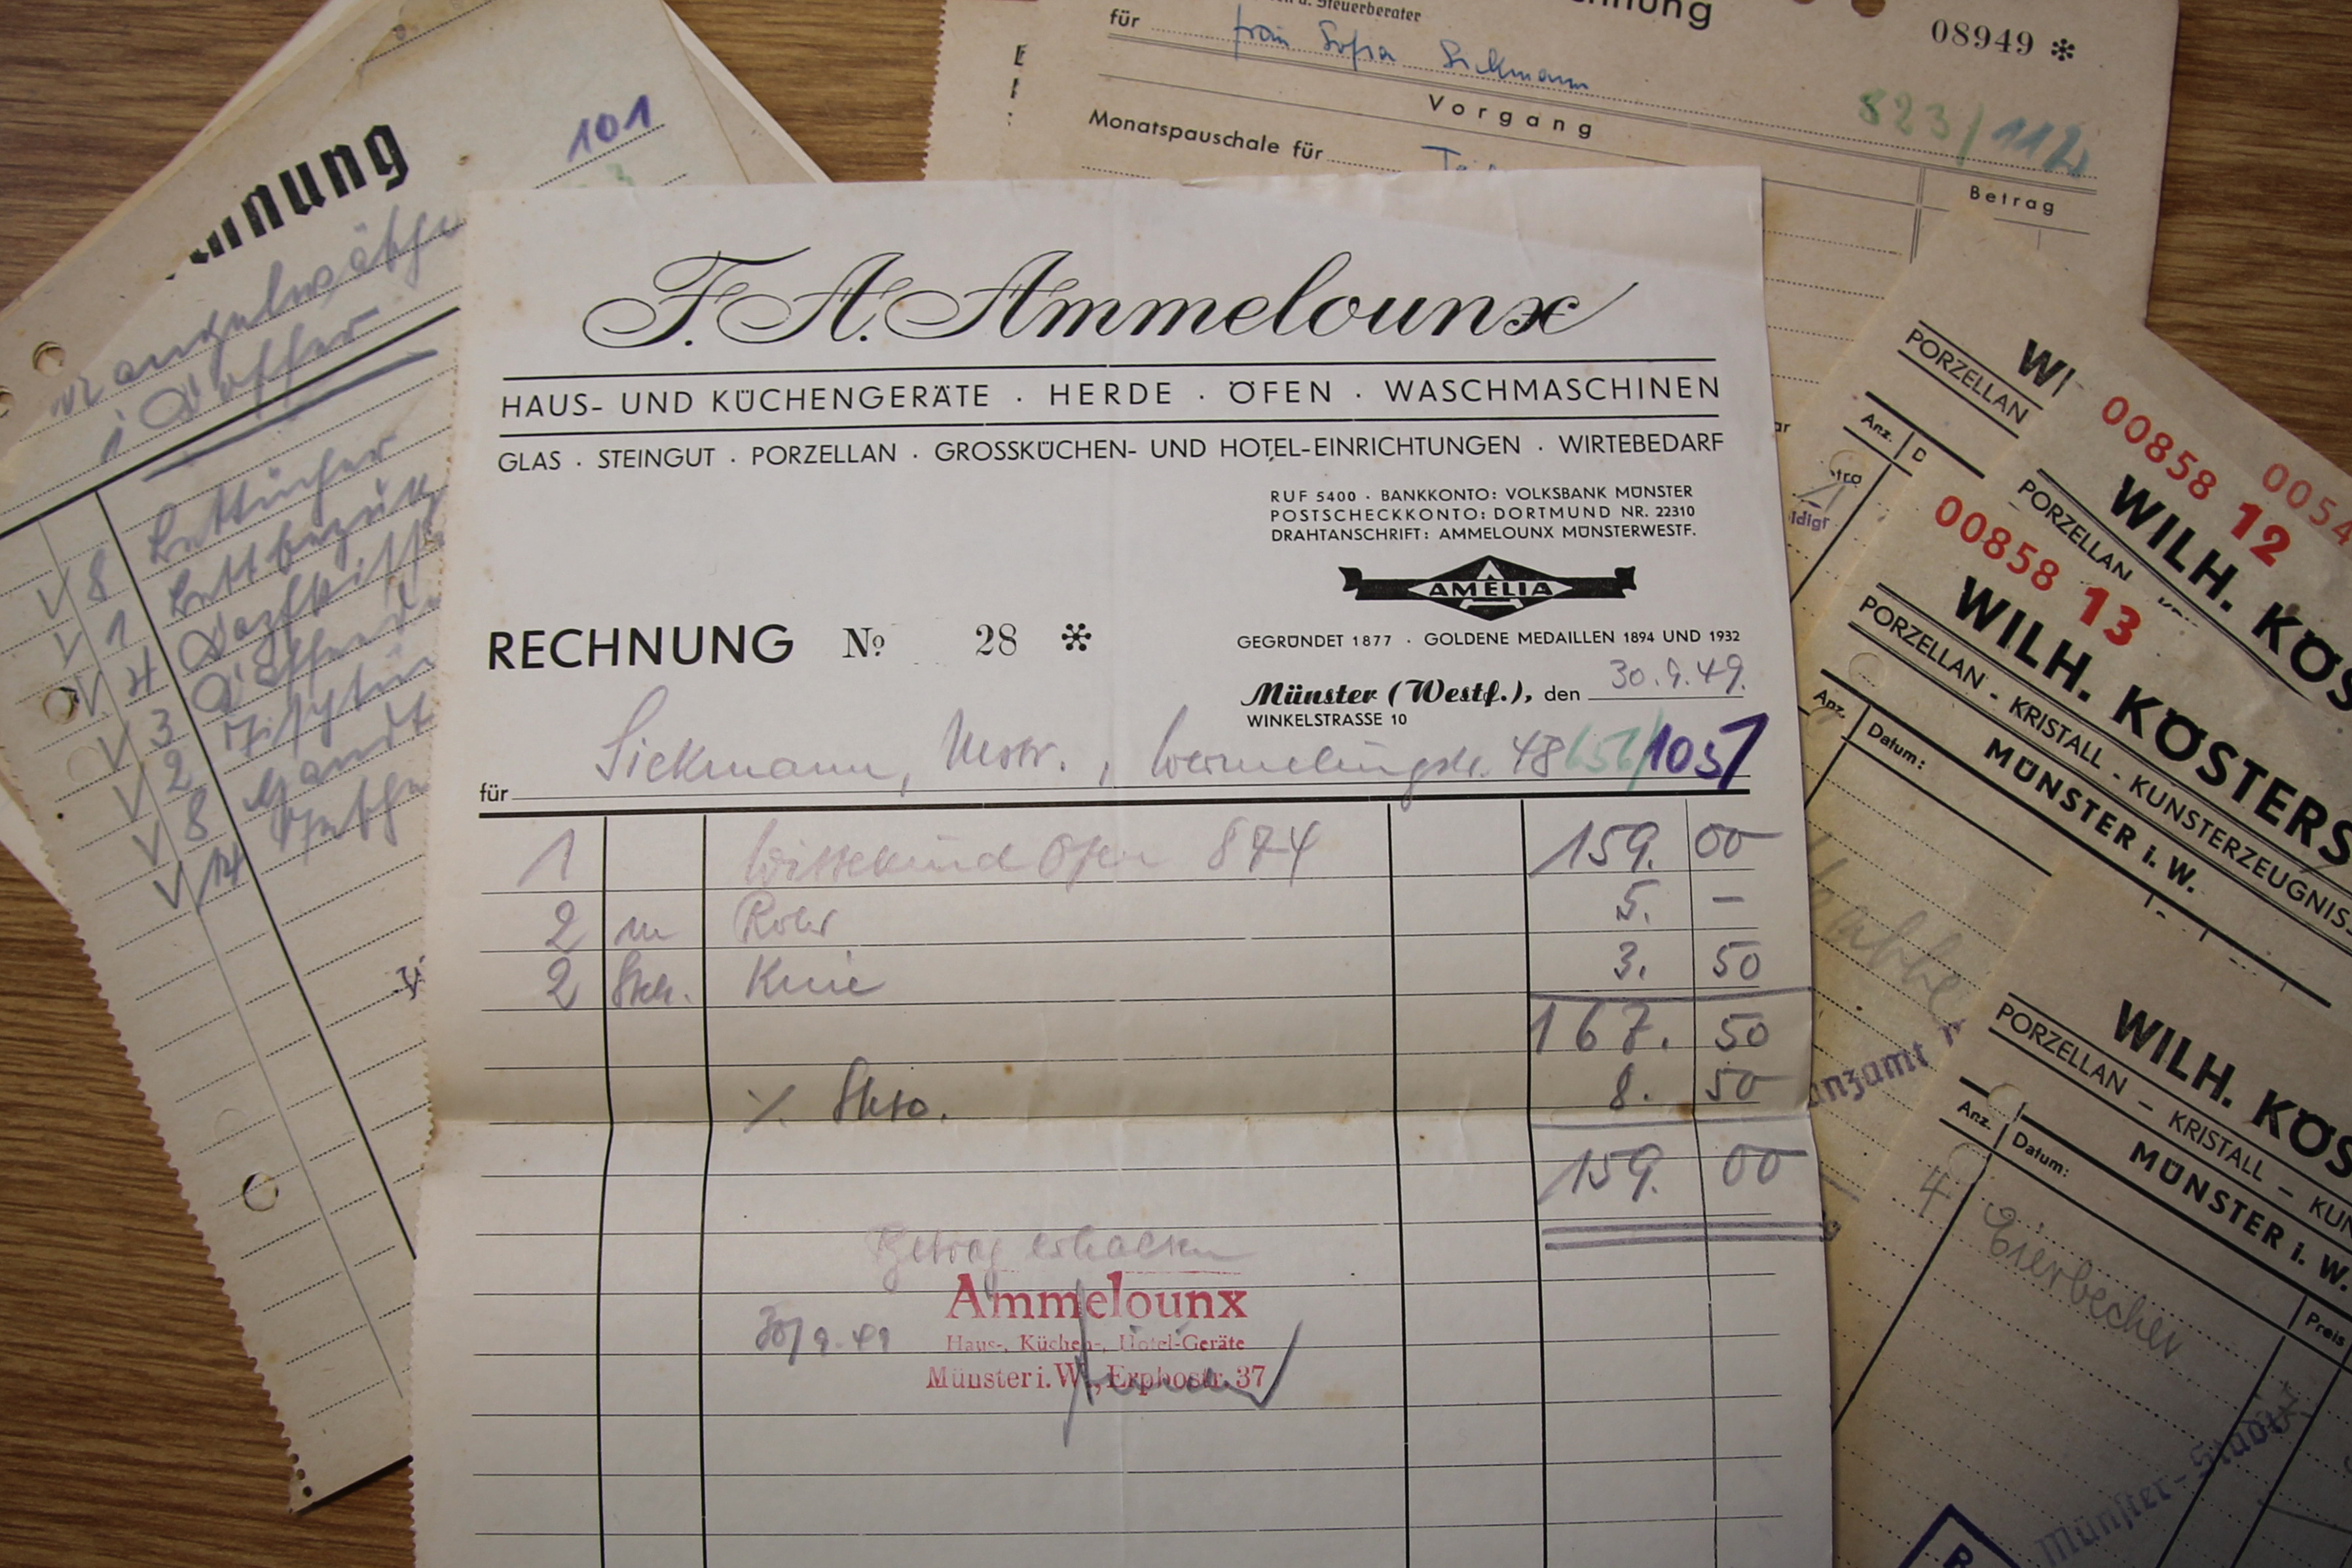 nnung
101
für Frau Sofia Siekmann
08949 *
Vorgang
823/112
Monatspauschale für
Betrag
F. A. Ammelounx
HAUS- UND KÜCHENGERÄTE · HERDE · ÖFEN · WASCHMASCHINEN
GLAS · STEINGUT · PORZELLAN · GROSSKÜCHEN- UND HOTEL-EINRICHTUNGEN · WIRTEBEDARF
RUF 5400 · BANKKONTO: VOLKSBANK MÜNSTER
POSTSCHECKKONTO: DORTMUND NR. 22310
DRAHTANSCHRIFT: AMMELOUNX MÜNSTERWESTF.
AMELIA
GEGRÜNDET 1877 · GOLDENE MEDAILLEN 1894 UND 1932
RECHNUNG No 28 *
Münster (Westf.), den 30.9.49.
WINKELSTRASSE 10
für Siekmann, Mstr., 48 1051
1 Wittekind Ofen 874 159. 00
2 m Rohr 5. –
2 Stck. Knie 3. 50
167. 50
% Skto. 8. 50
159. 00
Betrag erhalten
Ammelounx
30/9.49
Haus-, Küchen-, Hotel-Geräte
Münster i. W., Erphostr. 37
8 Bettücher
1
4
3
2
8
14
PORZELLAN
Anz.
0054
00858 12
PORZELLAN
WILH. KÖS
00858 13
WILH. KÖSTERS
PORZELLAN - KRISTALL - KUNSTERZEUGNIS
MÜNSTER i. W.
Anz. Datum:
anzamt
WILH. KÖS
PORZELLAN – KRISTALL – KUN
MÜNSTER i. W.
Anz. Datum:
Preis
4 Eierbecher
Münster-Stadt